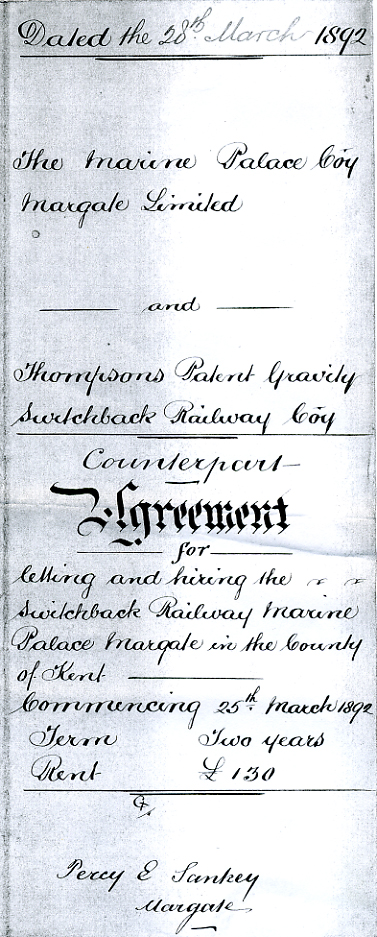 Dated the 28th March 1892
The Marine Palace Coy
Margate Limited
and
Thompsons Patent Gravity
Switchback Railway Coy
Counterpart
Agreement
for
letting and hiring the
Switchback Railway Marine
Palace Margate in the County
of Kent
Commencing 25th March 1892
Term Two years
Rent £130
Percy E Sankey
Margate